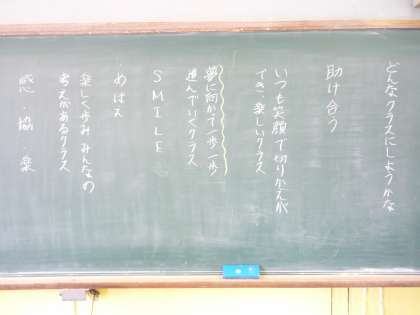 どんなクラスにしようかな
助け合う
いつも笑顔で切りかえが
でき、楽しいクラス
夢に向かって一歩一歩
進んでいくクラス
SMILE
めばえ
楽しく歩み みんなの
考えがあるクラス
感・協・楽